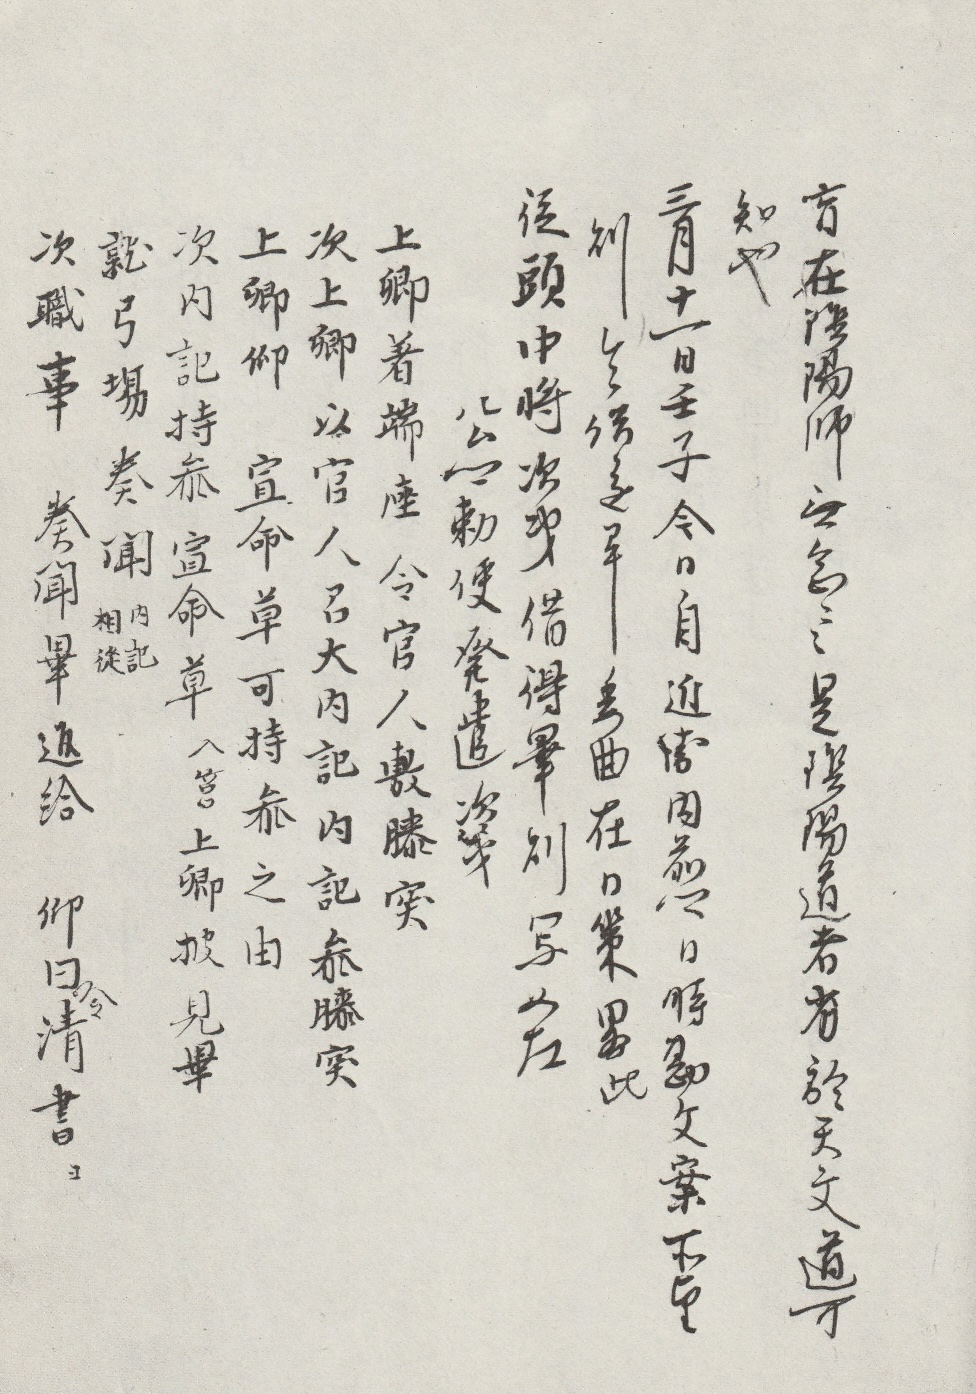 盲在陰陽師無念之是陰陽道者有於天文道可
知也
三月十一日壬子今日自近衛内前公日時勘文案所望
則令借進畢委曲在日策畧此
従頭中将次第借得畢則写如左
公卿勅使発遣次第
上卿着端座令官人敷膝突
次上卿以官人召大内記内記参膝突
上卿仰宣命草可持参之由
次内記持参宣命草入筥上卿披見畢
就弓場奏聞内記相従
次職事奏聞畢返給仰曰令清書ヨ